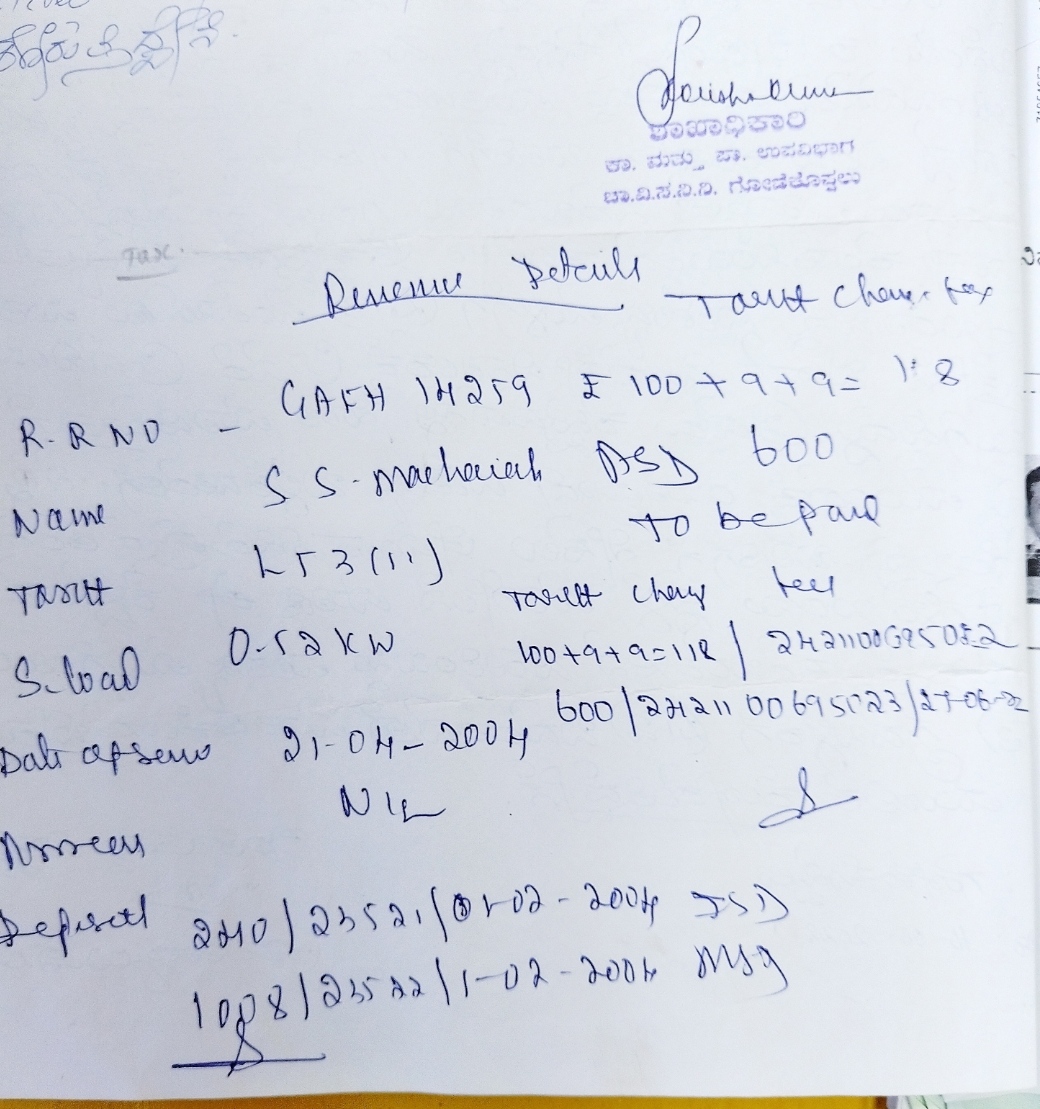 ಶಾಖಾಧಿಕಾರಿ
ಕಾ. ಮತ್ತು ಪಾ. ಉಪವಿಭಾಗ
ಚಾ.ವಿ.ಸ.ನಿ.ನಿ. ಗೋಣಿಕೊಪ್ಪಲು
Tax.
Revenue Details
Tariff Change fee
R.R NO - GAFH 14259 ₹ 100 + 9 + 9 = 118
Name S S. machaiah ASD 600
To be paid
Tariff LT3(ii)
Tariff Chang fee
S.load 0.52 KW 100+9+9=118 /
Date of Serv 21-04-2004 600/2421100695023/27-06-22
Arrears NIL
Deposit 240/23521/01-02-2004 ISD
1008/23522/1-02-2004 MSD